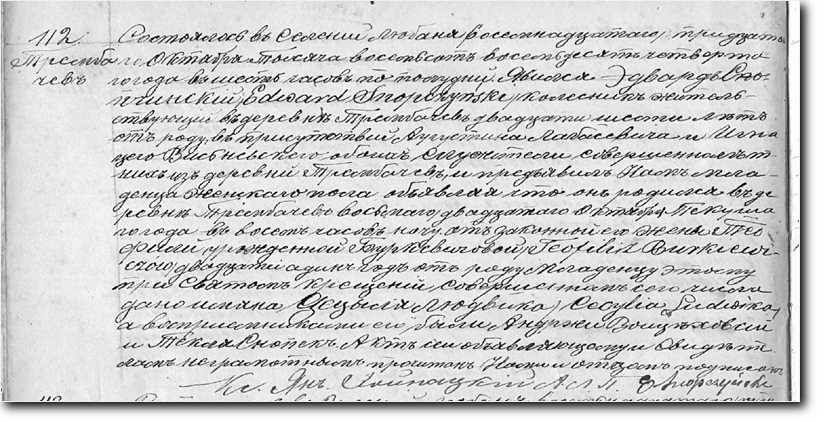 112. Состоялось въ селеніи Любаня восемнадцатаго, тридцата
Тремба го, Октября тысяча восемьсотъ восемьдесятъ четверта
чевъ го года въ шесть часовъ по полудни. Явился Эдвардъ Сно
пчинскій, Edward Snopczynski, колесникъ житель
ствующій въ деревнѣ Трембачевъ двадцати шести лѣтъ
отъ роду, въ присутствіи Августина и Игна
цего Висьнѣвскаго обоихъ совершеннолѣт
нихъ изъ деревни Трембачевъ, и предъявилъ Намъ мла
денца женскаго пола объявляя что онъ родился въ де
ревнѣ Трембачевъ восьмаго, двадцатаго Октября текуща
го года въ восемь часовъ ночи, отъ законной его жены Тео
филіи, урожденной Буркевичовой, Teofilii
двадцати одинъ годъ отъ роду. Младенцу этому
при Святомъ Крещеніи, совершенномъ сего числа
дано имяна, Цецыля Людвика, Cecylia Ludwika,
а воспріемниками его были Андржей Войцѣховскій
и Текля Актъ сей объявляющему и Свидѣте
лямъ неграмотнымъ прочтенъ Нами и отцемъ подписанъ
Кс. Янъ А. М. П. E Snopczynski